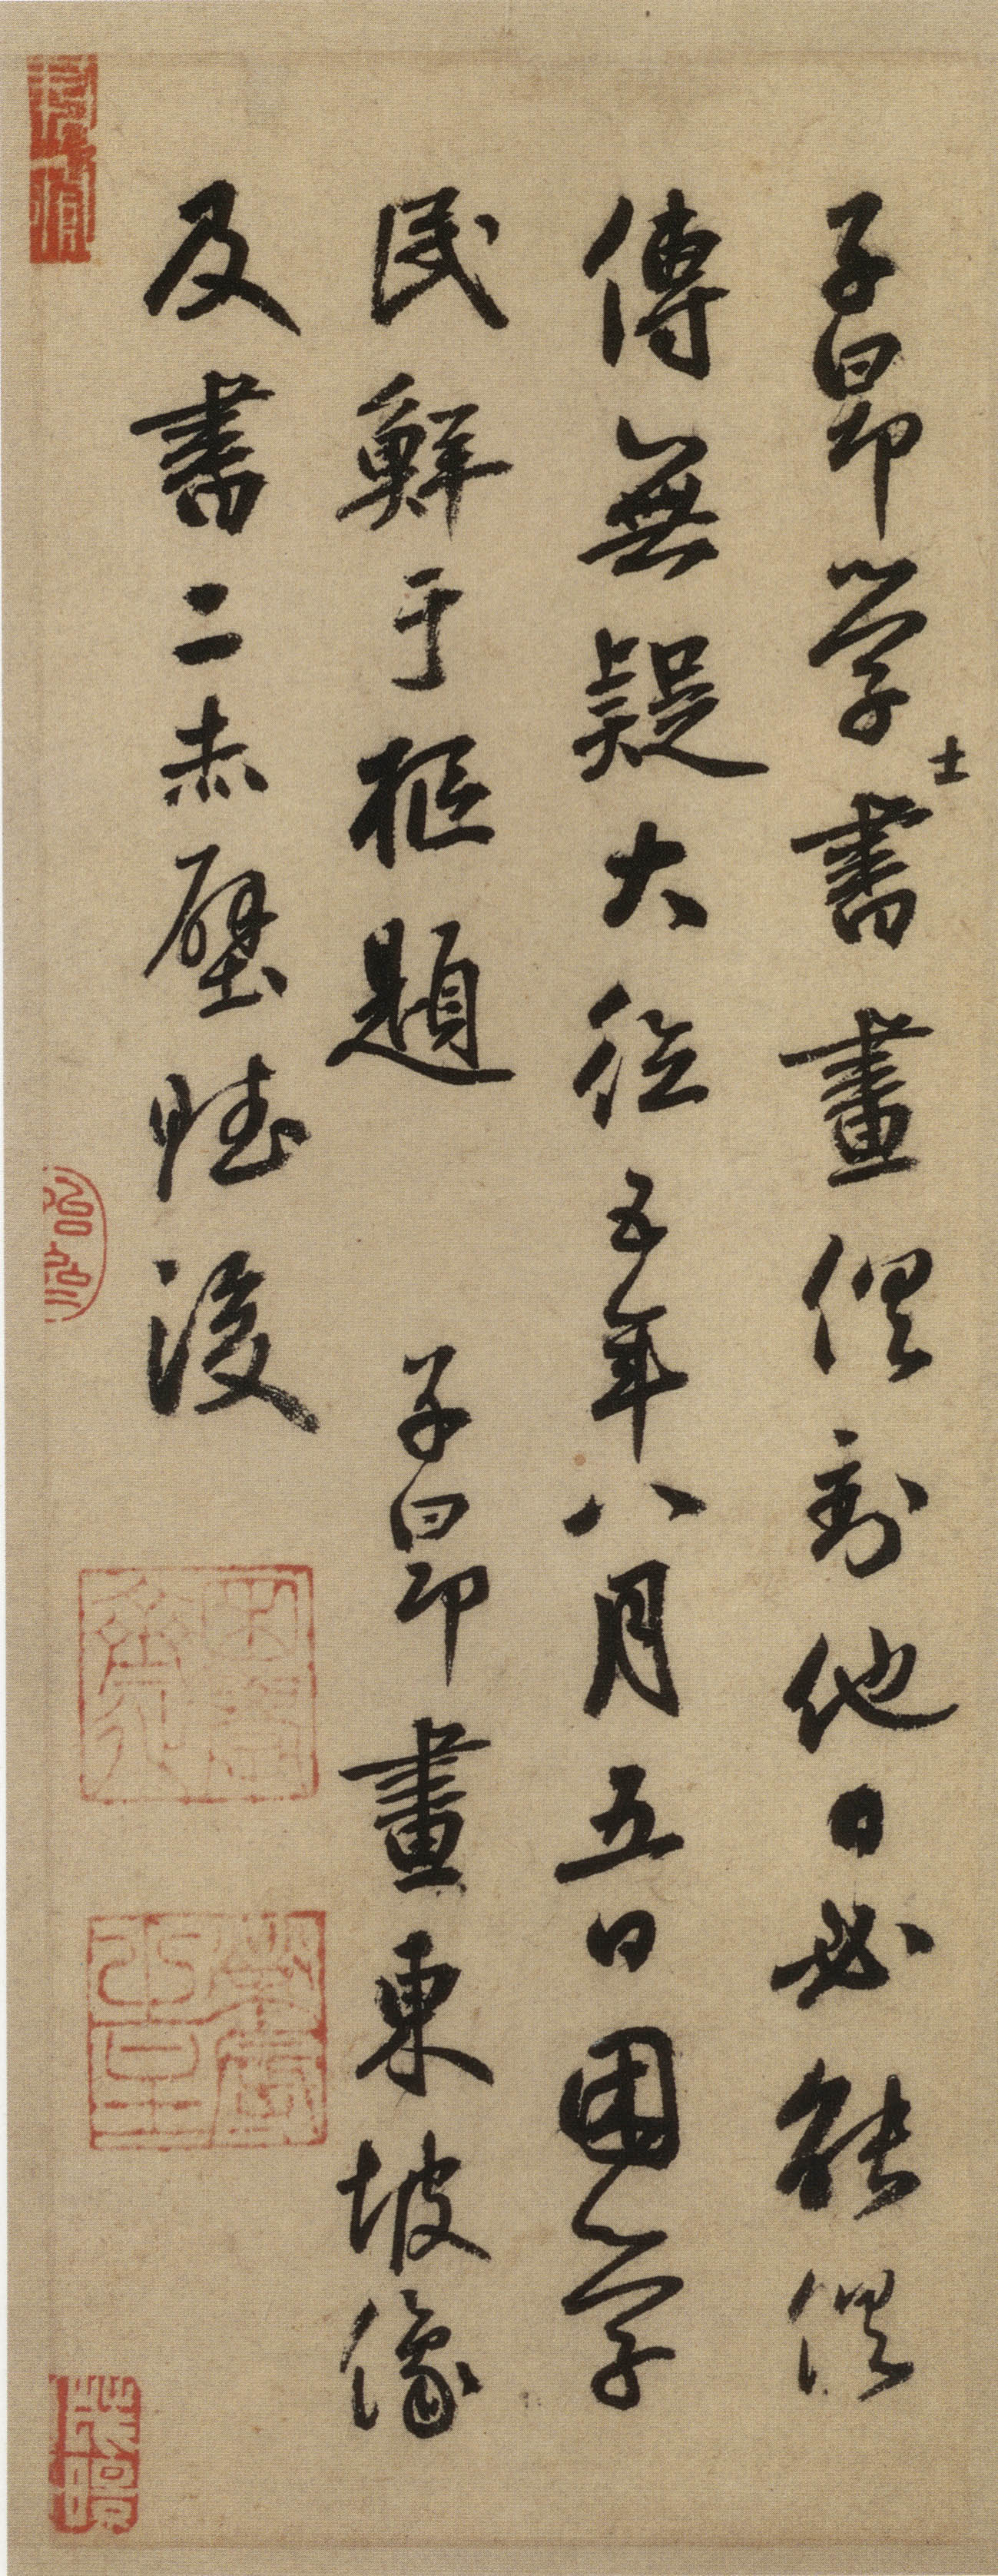 子昂學士書畫俱到他日必能俱
傳無疑大德五年八月五日困學
民鮮于樞題　子昂畫東坡像
及書二赤壁賦後